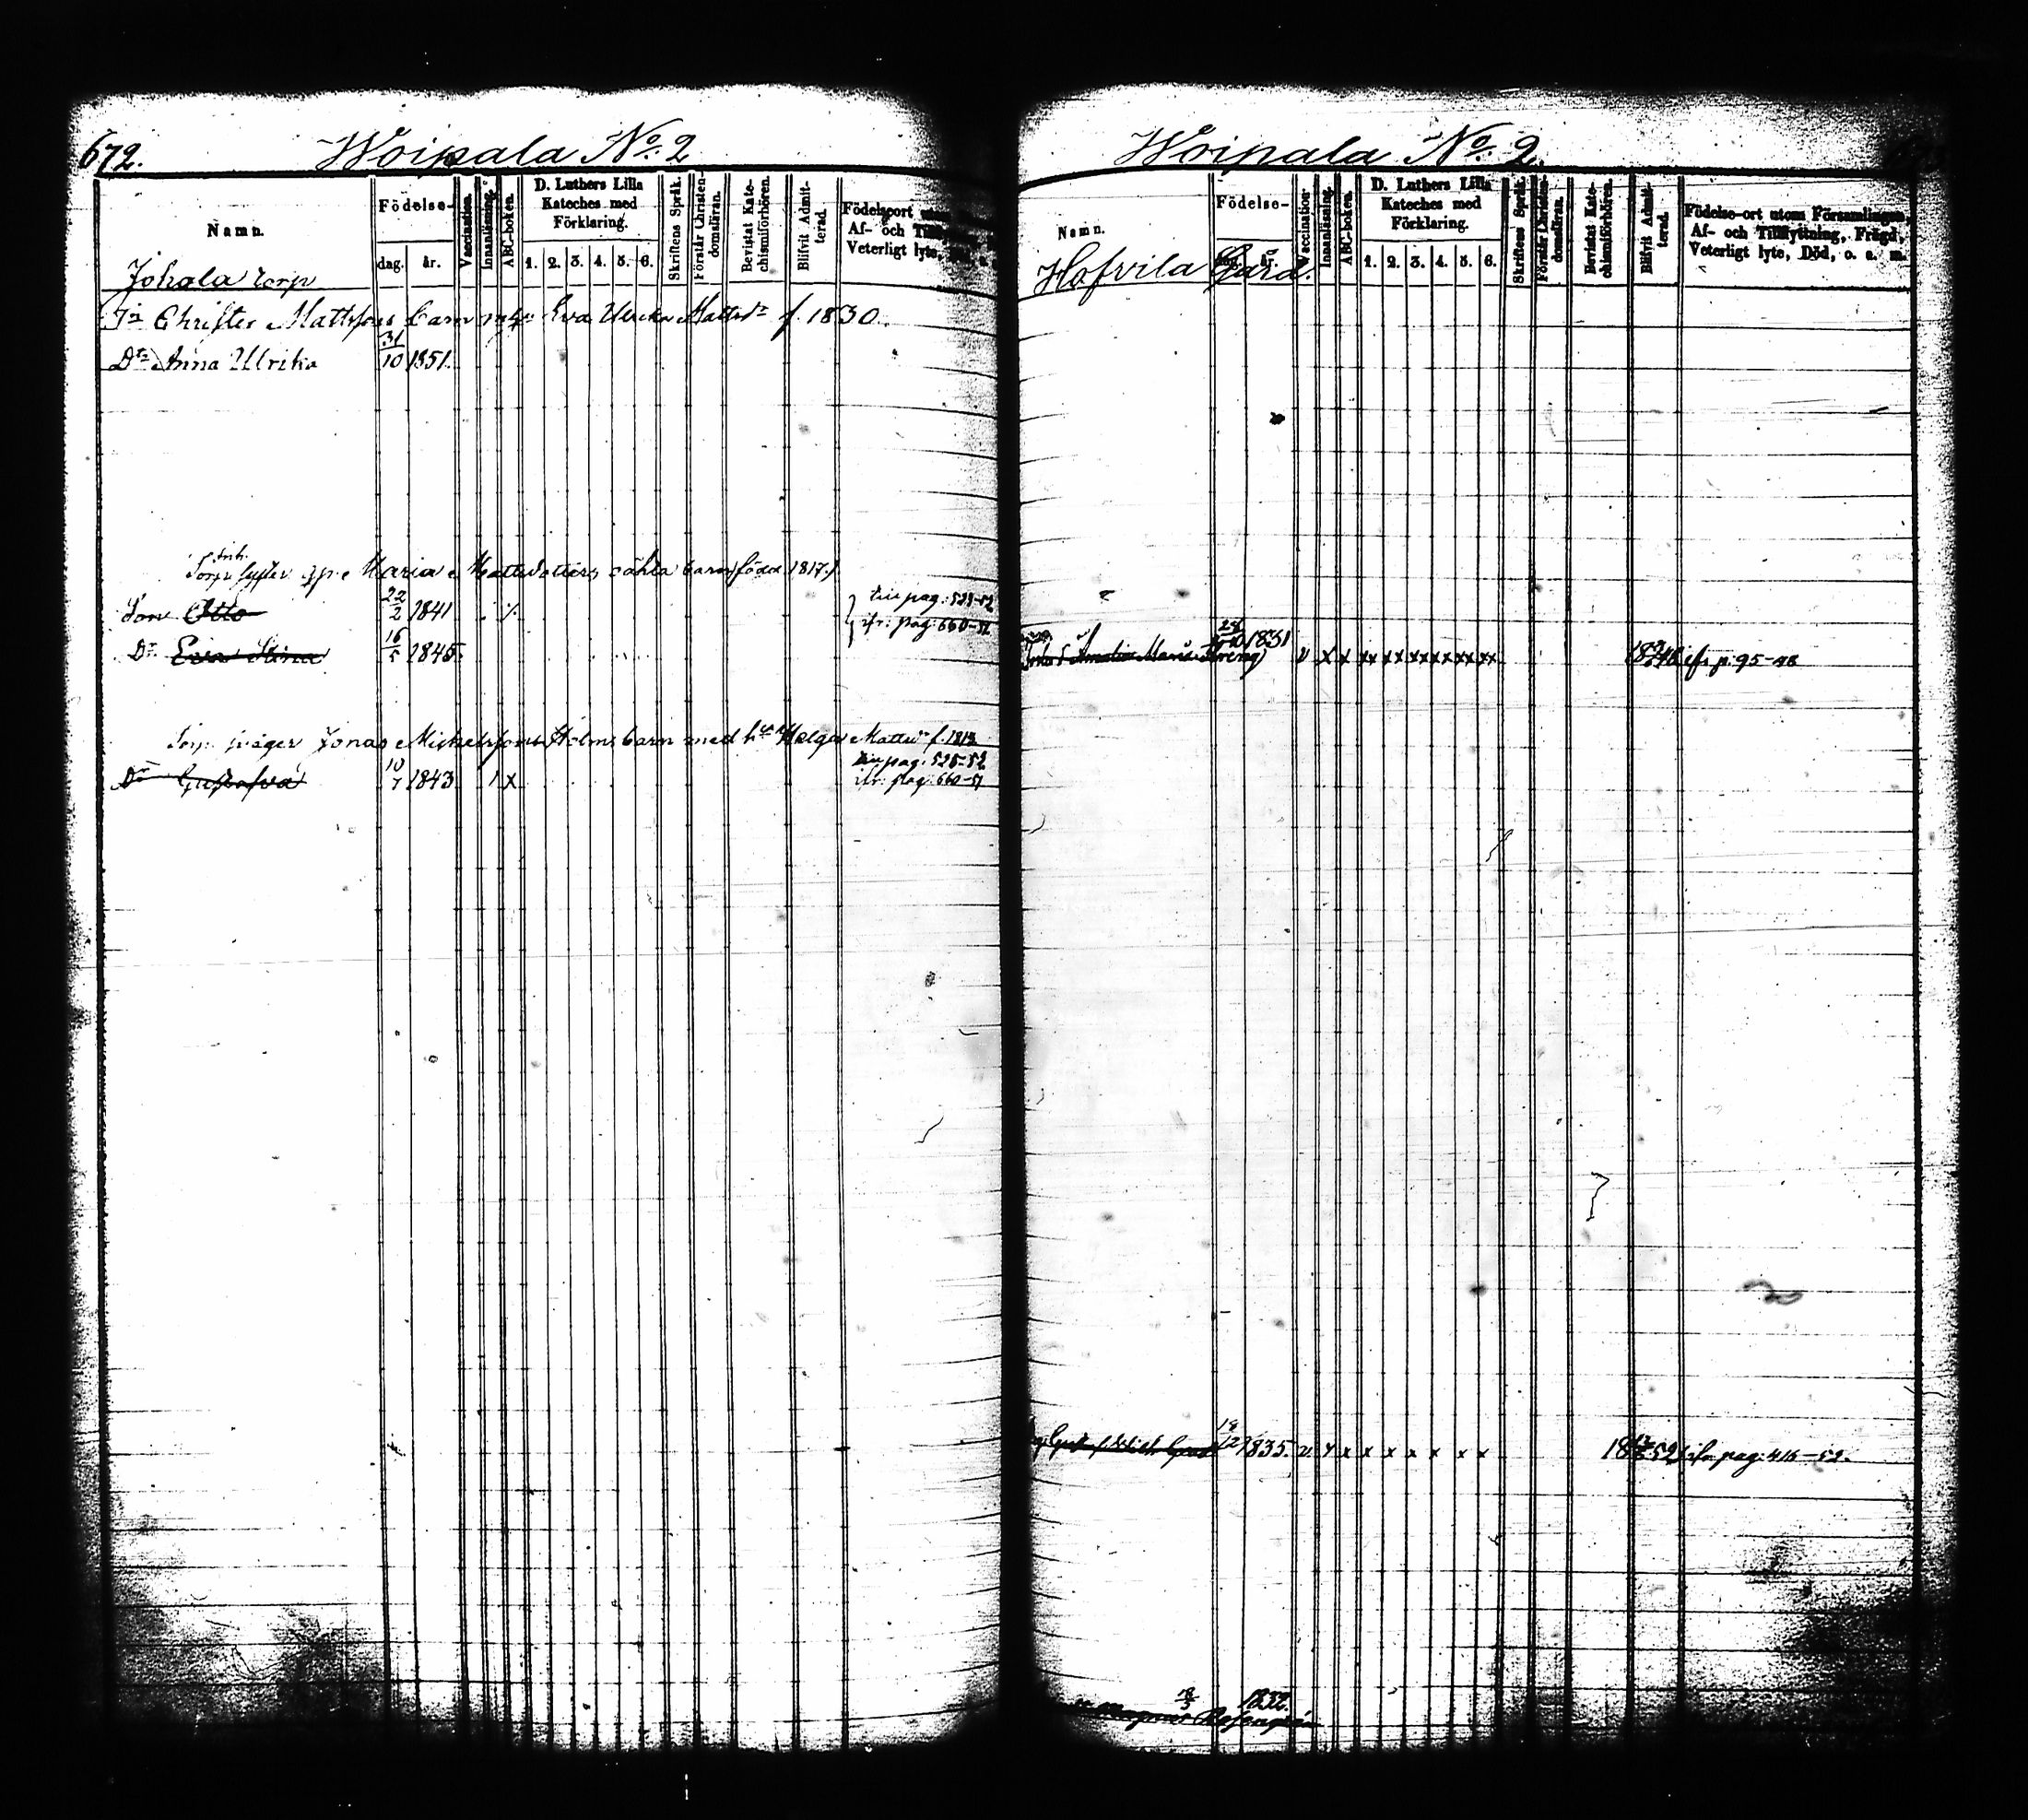 672.
Woipala No. 2
Namn.
Födelse-
dag. år.
Vaccination.
Innanläsning.
ABC-boken.
D. Luthers Lilla
Kateches med
Förklaring.
1. 2. 3. 4. 5. 6.
Skriftens Språk.
Förstår Christen-
domsläran.
Bevistat Kate-
chismiförhören.
Blifvit Admit-
terad.
Födelseort utom
Af- och Till
Veterligt lyte,
Johala torp
Christer Mattssons barn m. h. Eva Ulrika Mattsdr f. 1830.
Dr Anna Ulrika 31/10 1851.
Inh.
Torp. syster Maria Mattsdotters oäkta barn född 1817.
Son Otto 22/2 1841
till pag: 529-52
ifr: pag: 660-52
Dr Eva Stina 16/5 1845.
Torp. svåger Jonas Mickelsson Holms barn med h. Helga Mattsdr f. 1813
Dr Gustafva 10/7 1843 1 x
till pag. 525-52
ifr: pag: 660-51
Woipala No. 2.
Namn.
Födelse-
år.
Vaccination.
Innanläsning.
ABC-boken.
D. Luthers Lilla
Kateches med
Förklaring.
1. 2. 3. 4. 5. 6.
Skriftens Språk.
Förstår Christen-
domsläran.
Bevistat Kate-
chismiförhören.
Blifvit Admit-
terad.
Födelse-ort utom Församlingen,
Af- och Tillflyttning, Frägd,
Veterligt lyte, Död, o. s. m.
Hofvila Gård.
Amalia Maria 1831 v x x xx xx xx xx xx xx ifr p: 95-48
1835. v. x x x x x x x 52 ifr pag: 416-52.
1832.
Magnus Rosengrén